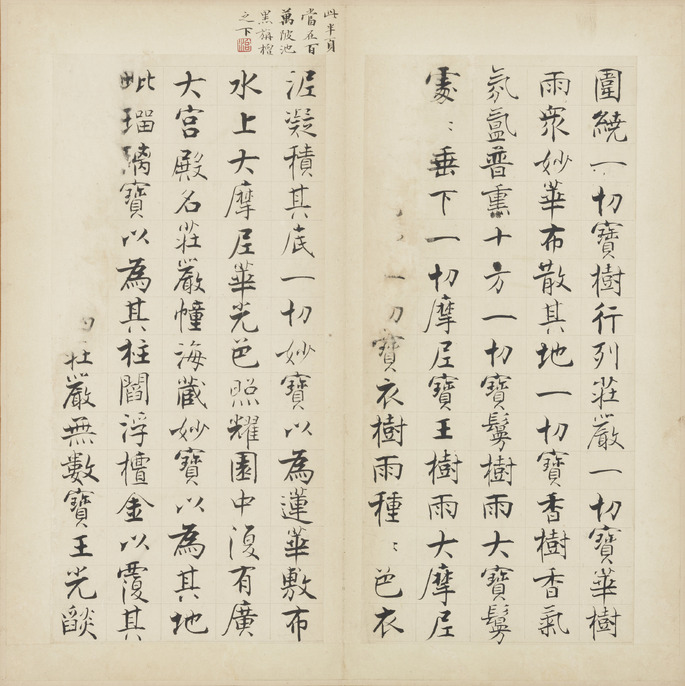 圍繞一切寶樹行列莊嚴一切寶華樹
雨衆妙華布散其地一切寶香樹香氣
氛氳普熏十方一切寶鬘樹雨大寶鬘
處〻垂下一切摩尼寶王樹雨大摩尼
一切寶衣樹雨種〻色衣
此半頁
當在百
萬陂池
黑旃檀
之下
泥凝積其底一切妙寶以為蓮華敷布
水上大摩尼華光色照耀園中復有廣
大宮殿名莊嚴幢海藏妙寶以為其地
毗瑠璃寶以為其柱閻浮檀金以覆其
莊嚴無數寶王光燄